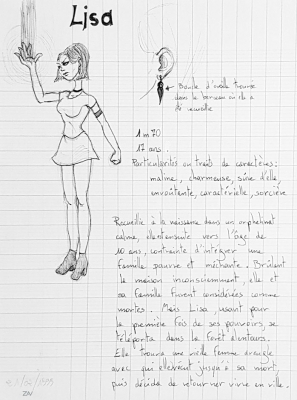 Lisa
Boucle d'oreille trouvée
dans le berceau où elle a
été recueillie
1m70
17 ans
Particularités ou traits de caractères:
maline, charmeuse, sûre d'elle,
envoûtante, caractérielle, sorcière
Recueillie à la naissance dans un orphelinat
calme, elle est ensuite vers l'âge de
10 ans, contrainte d'intégrer une
famille pauvre et méchante. Brûlant
la maison inconsciemment, elle et
sa famille furent considérées comme
mortes. Mais Lisa, usant pour
la première fois de ses pouvoirs, se
téléporta dans la forêt d'alentours.
Elle trouva une vieille femme aveugle
avec qui elle vécut jusqu'à sa mort
puis décida de retourner vivre en ville.